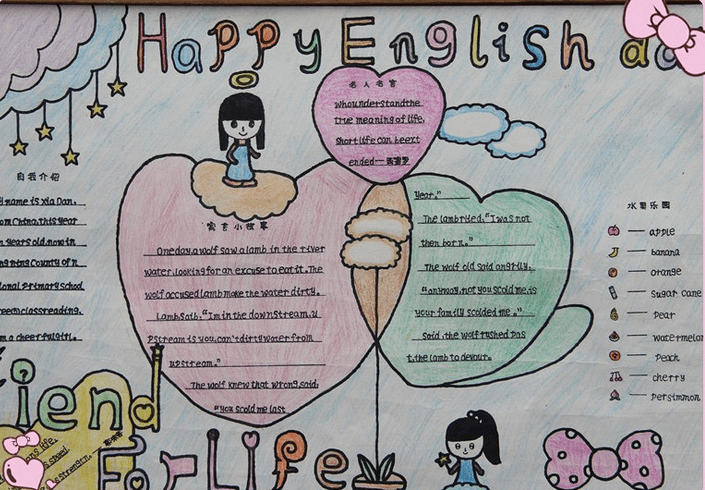 Happy English
名人名言
whounderstandthe
true meaning of life,
short life can beext
ended—
自我介绍
name is Xia Dan.
om China.this year
years old.now in
County of n
ional primary school
classreading.
m a cheerfulgirl.
寓言小故事
Oneday,a wolf saw a lamb in the river
water,looking for an excuse to eat it. The
wolf accused lamb make the water dirty.
Lamb saib."I'm in the downstream.u
Pstream is you,can't dirtywater from
upstream."
The wolf knew that wrong,said:
"you scold me last
year."
The lambtried."I was not
then born."
The wolf old said angrily.
"anyway,not you scold me,is
your family scolded me."
Said,the wolf rushed pas
t,the lamb to devour.
水果乐园
apple
banana
orange
Sugar cane
Pear
watermelon
Peach
cherry
Persimmon
iend
For Life